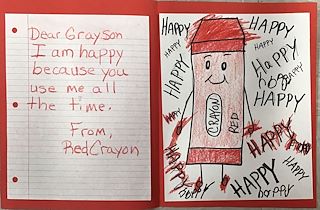 Dear Grayson
I am happy
because you
use me all
the time.
From,
Red Crayon
HAPPY
HAPPY
HAPPY
HAPPY
HAPPY
HAPPY
HAPPY
Happy
HAPPY
CRAYON
RED
HAPPY
HAPPY
HAPPY
HAPPY
HAPPY
happy